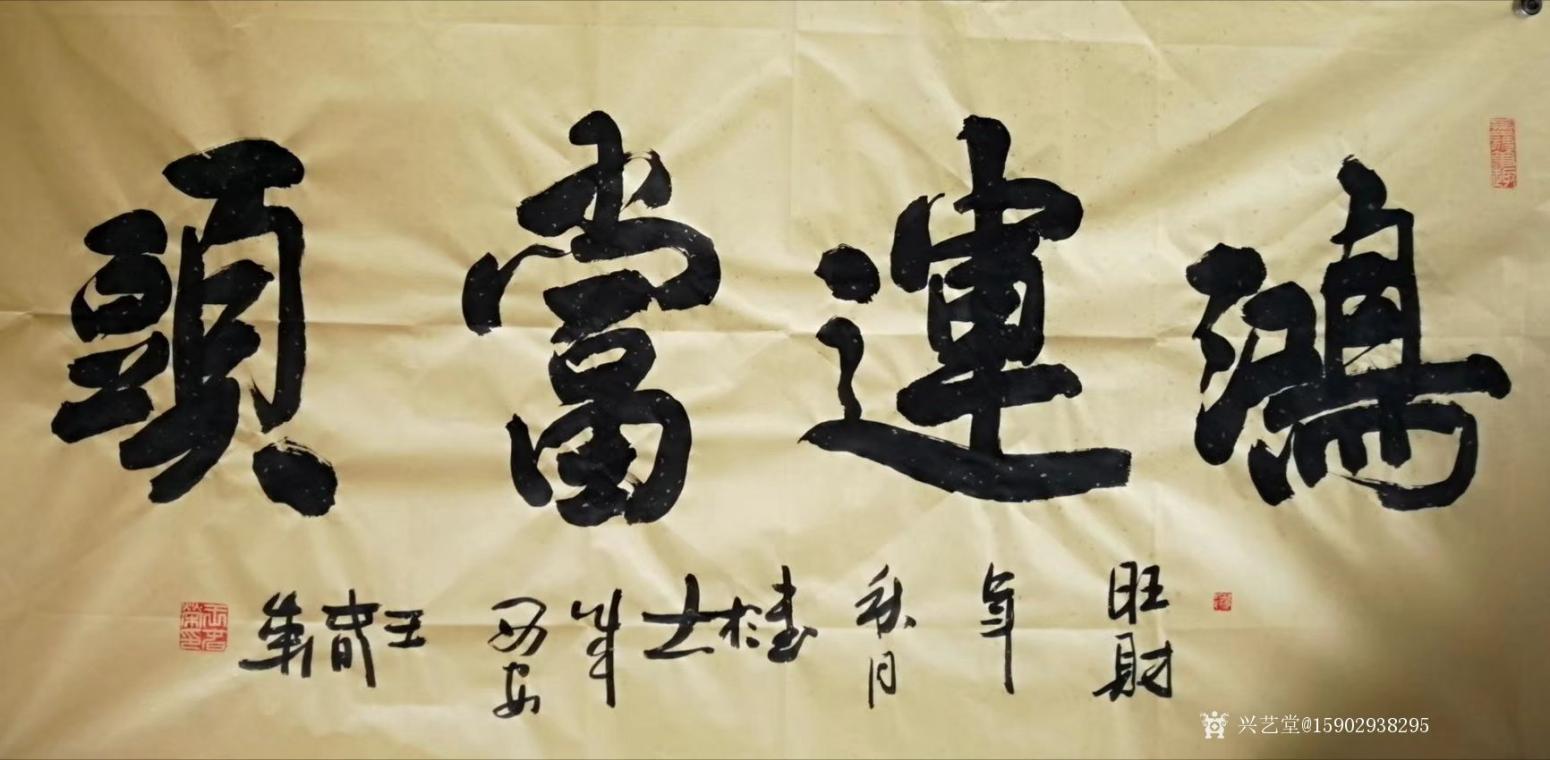 鴻運當頭
旺財
年
秋月
書於
西安
王
兴艺堂@15902938295